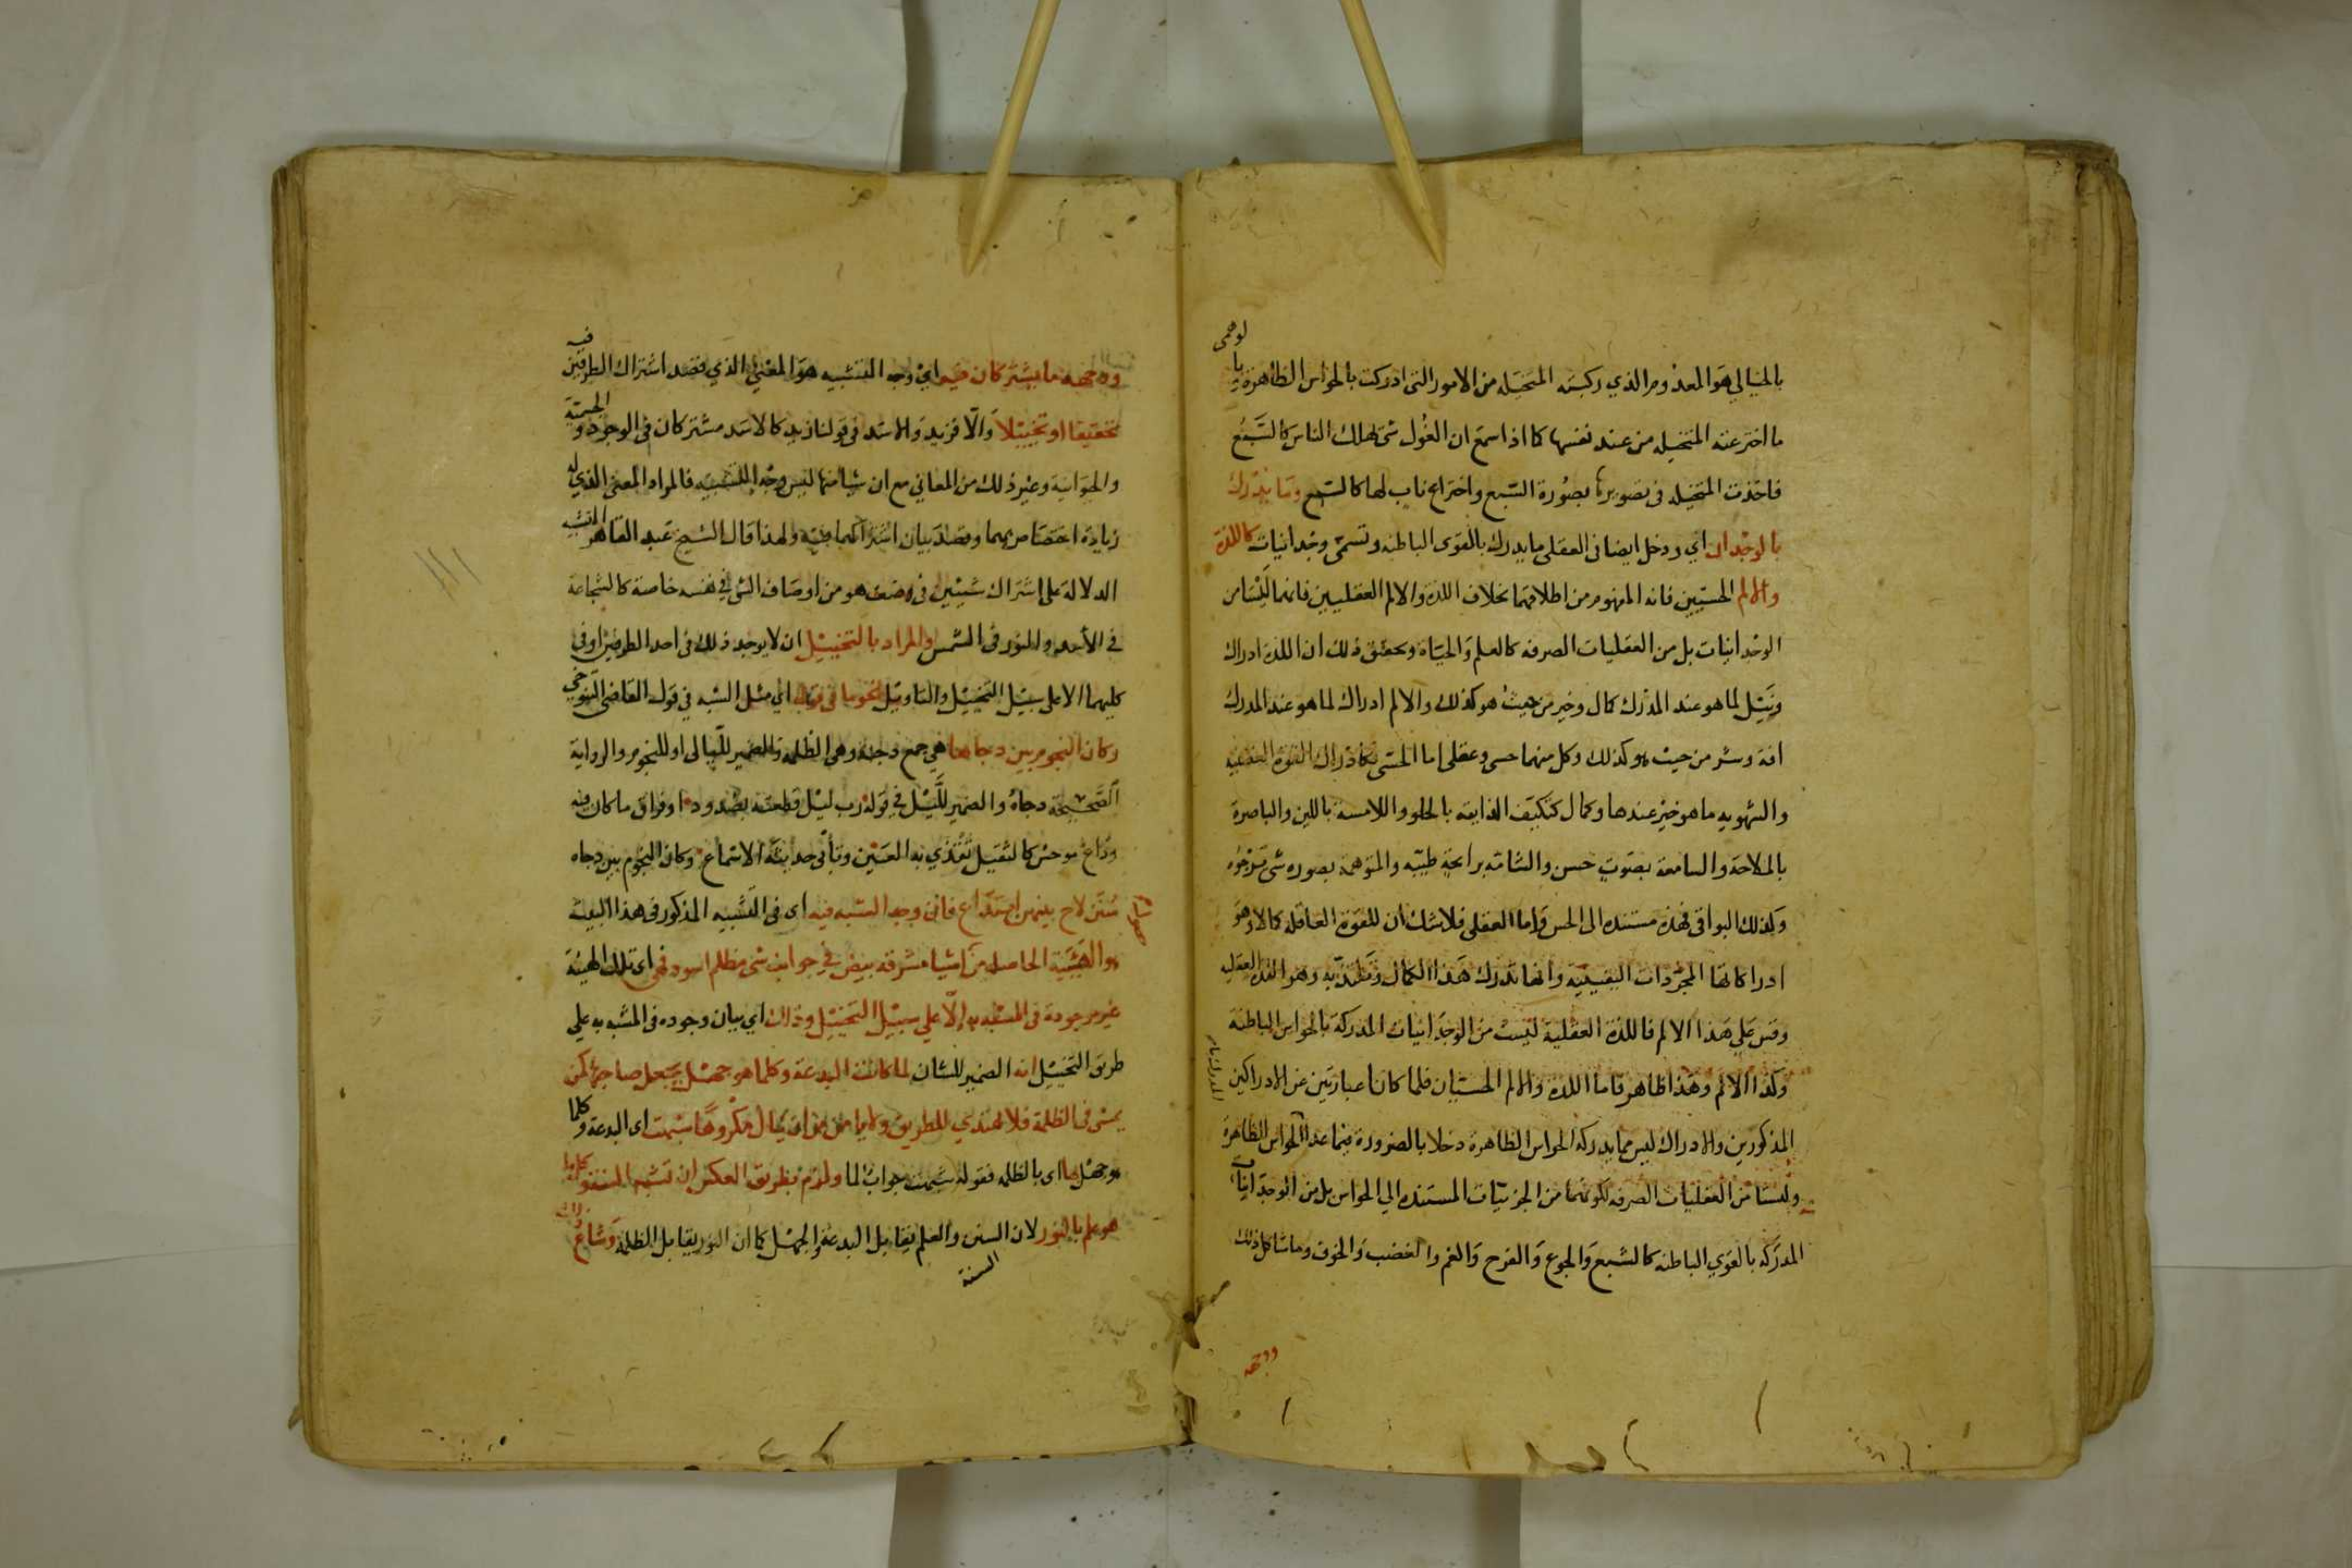 بالخيالي هو المعدوم الذي ركبته المتخيله من الامور التى ادركت بالحواس الظاهرة وبالوهمى
ما اخترعته المتخيله من عند نفسها كما اذا سمع ان الغول شئ تهلك الناس كالسَّبُع
فاخذت المتخيله فى تصويرها بصورة السبع واختراع ناب لها كالسبع وما يدرك
بالوجدان اي ودخل ايضا فى العقلى ما يدرك بالقوى الباطنه وتسمى وجدانيات كاللذة
والالم الحسيين فانه المفهوم من اطلاقهما بخلاف اللذة والالم العقليين فانهما ليسا من
الوجدانيات بل من العقليات الصرفه كالعلم والحياة وتحقيق ذلك ان اللذة ادراك
ونيل لما هو عند المدرك كمال وخير من حيث هو كذلك والالم ادراك لما هو عند المدرك
افة وشر من حيث هو كذلك وكل منهما حسى وعقلى اما الحسى فكادراك القوة الغضبيه
والشهويه ما هو خير عندها وكمال كتكيف الذايقه بالحلو واللامسه باللين والباصرة
بالملاحة والسامعة بصوت حسن والشامّه برايحة طيبه والمتوهمة بصوره شئ ترجوه
وكذلك البواقى فهذه مستنده الى الحس واما العقلى فلا شك ان للقوة العاقله كمالا وهو
ادراكاتها المجردات اليقينيه وانها تدرك هذا الكمال وتلتذ به وهو اللذه العقليه
وقس على هذا الالم فاللذة العقلية ليست من الوجدانيات المدركة بالحواس الباطنه
وكذا الالم وهذا ظاهر واما اللذة والالم الحسيان فلما كانا عبارتين عن الادراكين
المذكورين والادراك ليس مما يدركه الحواس الظاهرة دخلا بالضرورة فيما عدا الحواس الظاهرة
وليسا من العقليات الصرفه لكونهما من الجزئيات المستنده الى الحواس بل من الوجدانيات
المدركه بالقوى الباطنه كالشبع والجوع والفرح والغم والغضب والخوف وما شاكل ذلك
ووجهه
ووجهه ما يشتركان فيه اي وجه التشبيه هو المعنى الذي قصد اشتراك الطرفين فيه
تحقيقا او تخييلا والا فزيد والاسد فى قولنا زيد كالاسد مشتركان فى الوجود والجسمية
والحيوانية وغير ذلك من المعاني مع ان شيا منها ليس وجه التشبيه فالمراد المعنى الذي له
زيادة اختصاص بهما وقصد بيان اشتراكهما فيه ولهذا قال الشيخ عبد القاهر التشبيه
الدلالة على اشتراك شيئين فى وصف هو من اوصاف الشئ في نفسه خاصة كالشجاعة
في الاسد والنور فى الشمس والمراد بالتخييل ان لا يوجد ذلك فى احد الطرفين او فى
كليهما الا على سبيل التخييل والتاويل نحو ما فى قوله اي مثل الشبه في قول القاضى التنوخي
وكان النجوم بين دجاها هي جمع دجية وهى الظلمة والضمير لليالى او للنجوم والرواية
الصحيحة دجاه والضمير لليل في قوله رب ليل قطعته بصدود او فراق ما كان فيه
وداع موحش كالثقيل تقذي به العين وتأبى حديثه الاسماع وكان النجوم بين دجاه
سنن لاح بينهن ابتداع فان وجه الشبه فيه اى فى التشبيه المذكور فى هذا البيت
هو الهيئة الحاصله من اشيا مشرقه بيض في جوانب شى مظلم اسود فهى اى تلك الهيئة
غير موجودة فى المشبه به الا على سبيل التخييل وذلك اي بيان وجوده فى المشبه به على
طريق التخييل انه الضمير للشان لما كانت البدعة وكلما هو جهل يجعل صاحبها كمن
يمشى فى الظلمة فلا يهتدي للطريق ولا يامن من ان ينال مكروها شبهت اى البدعة وكلما
هو جهل بها اى بالظلمه فقوله شبهت جواب لما ولزم بطريق العكس ان تشبه السنة وكل ما
هو علم بالنور لان السنن والعلم يقابل البدعة والجهل كما ان النور يقابل الظلمة وشاع ذلك
السنة